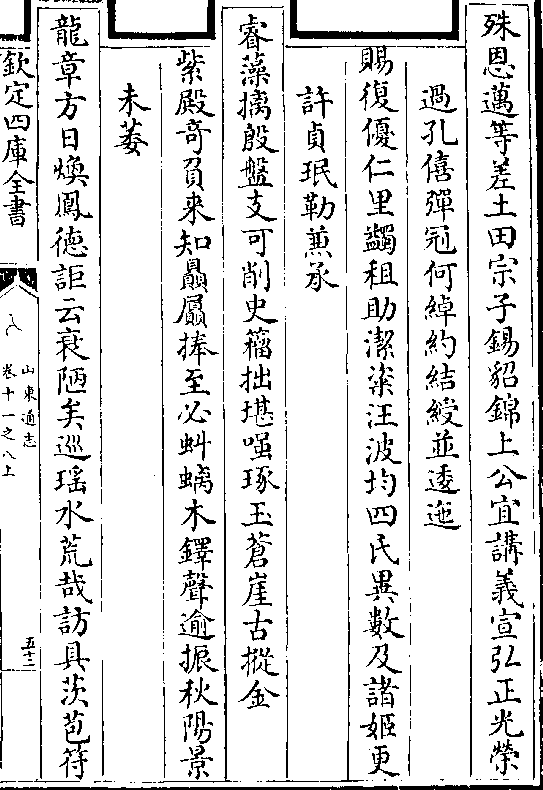 殊恩邁等差土田宗子錫貂錦上公宜講義宣弘正光榮
過孔僖彈冠何綽約結綬並逶迤
賜復優仁里蠲租助潔粢汪波均四氏異數及諸姬更
許貞珉勒兼承
睿藻摛殷盤支可削史籀拙堪嗤琢玉蒼崖古摐金
紫殿奇負來知贔屭捧至必虯螭木鐸聲逾振秋陽景
未萎
龍章方日煥鳳德詎云衰陋矣巡瑤水荒哉訪具茨苞符
欽定四庫全書
山東通志
卷十一之八上
五十二